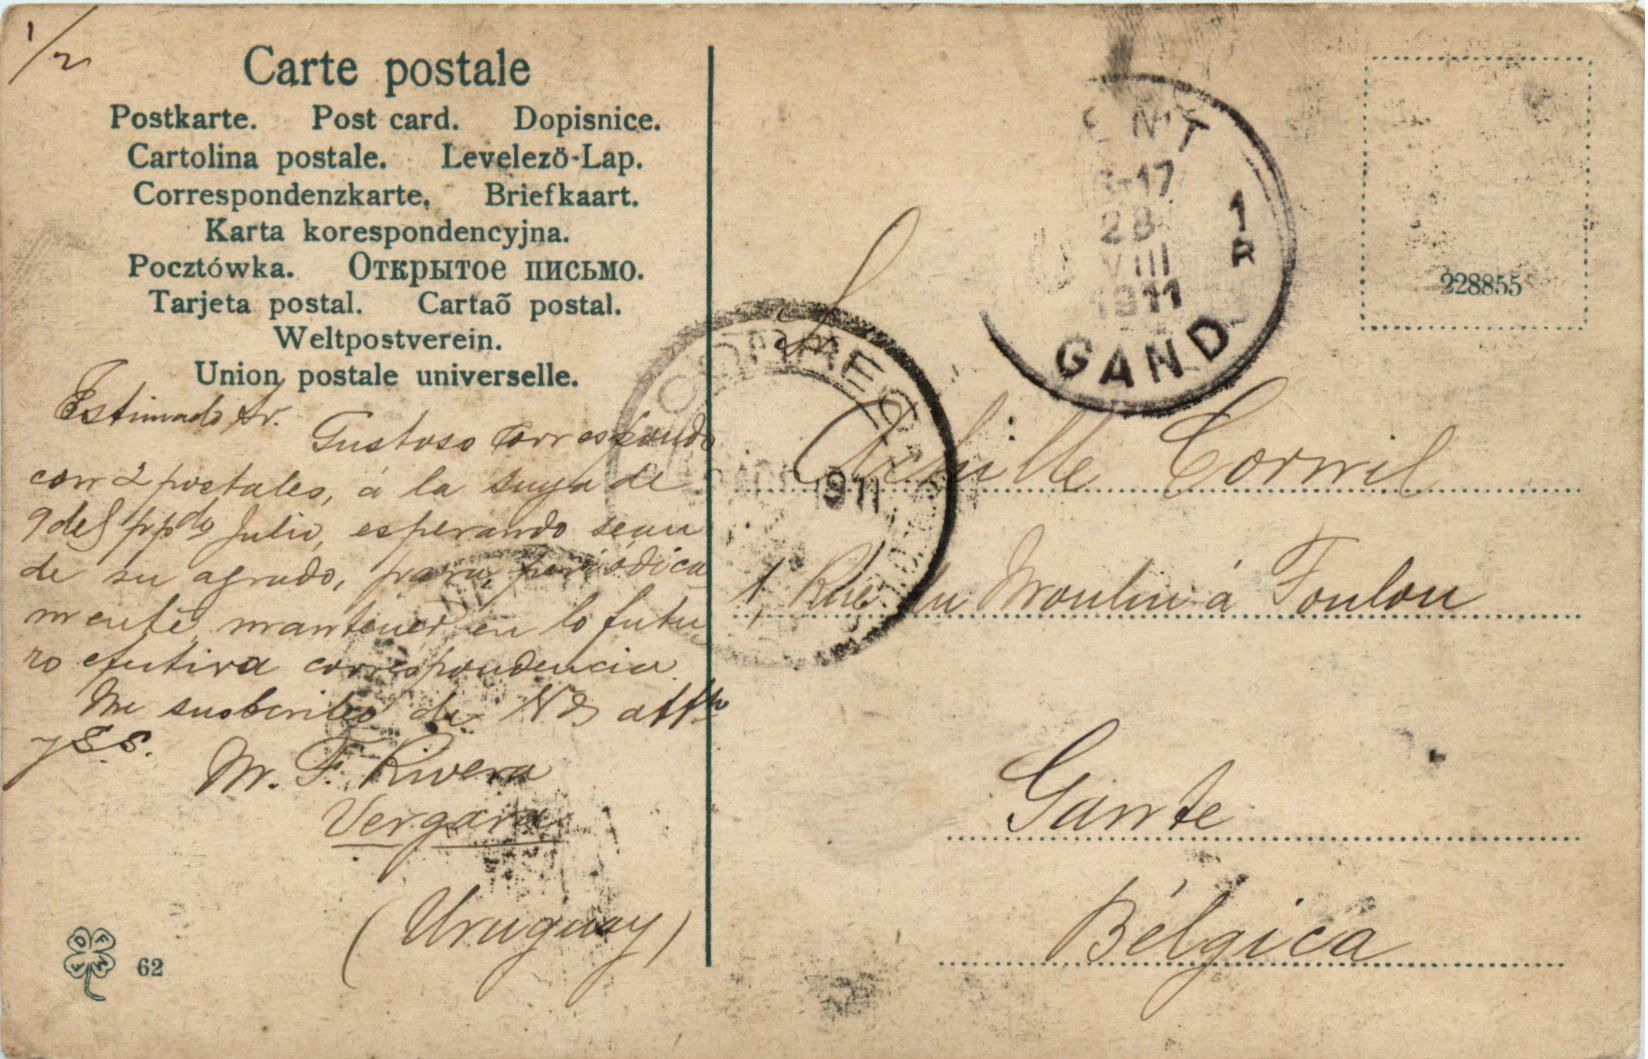 1/2
Carte postale
Postkarte. Post card. Dopisnice.
Cartolina postale. Levelező-Lap.
Correspondenzkarte. Briefkaart.
Karta korespondencyjna.
Pocztówka. Открытое письмо.
Tarjeta postal. Cartaõ postal.
Weltpostverein.
Union postale universelle.
Estimado Sr.
Gustoso correspondo
con 2 postales, á la suya de
9 del ppdo Julio, esperando sean
de su agrado, para periódica
mente mantener en lo futu
ro efutiva correspondencia.
Me suscribo de Vd atto
y S.S.
M. F. Rivera
Vergara
(Uruguay)
62
NT
-17
28
VIII
1911
1
R
GAND
228855
1911
S.
Achille Corwil
1, Rue du Moulin á Foulon
Gante
Bélgica